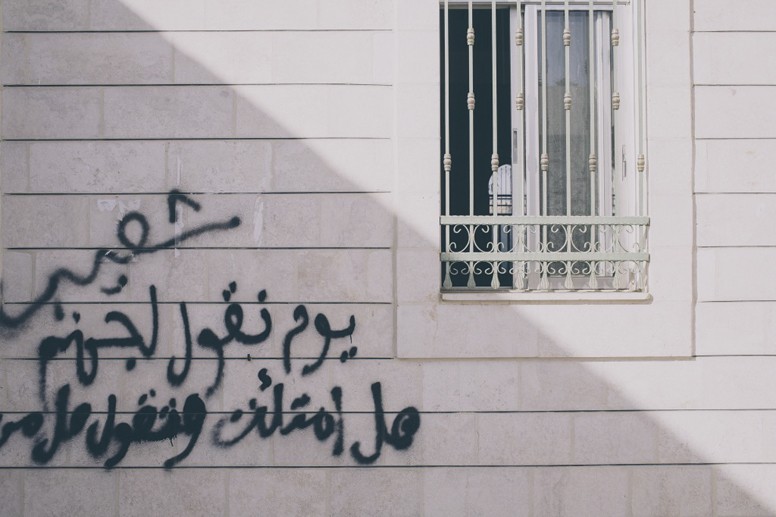 يوم نقول لجهنم
هل امتلئت وتقول هل من